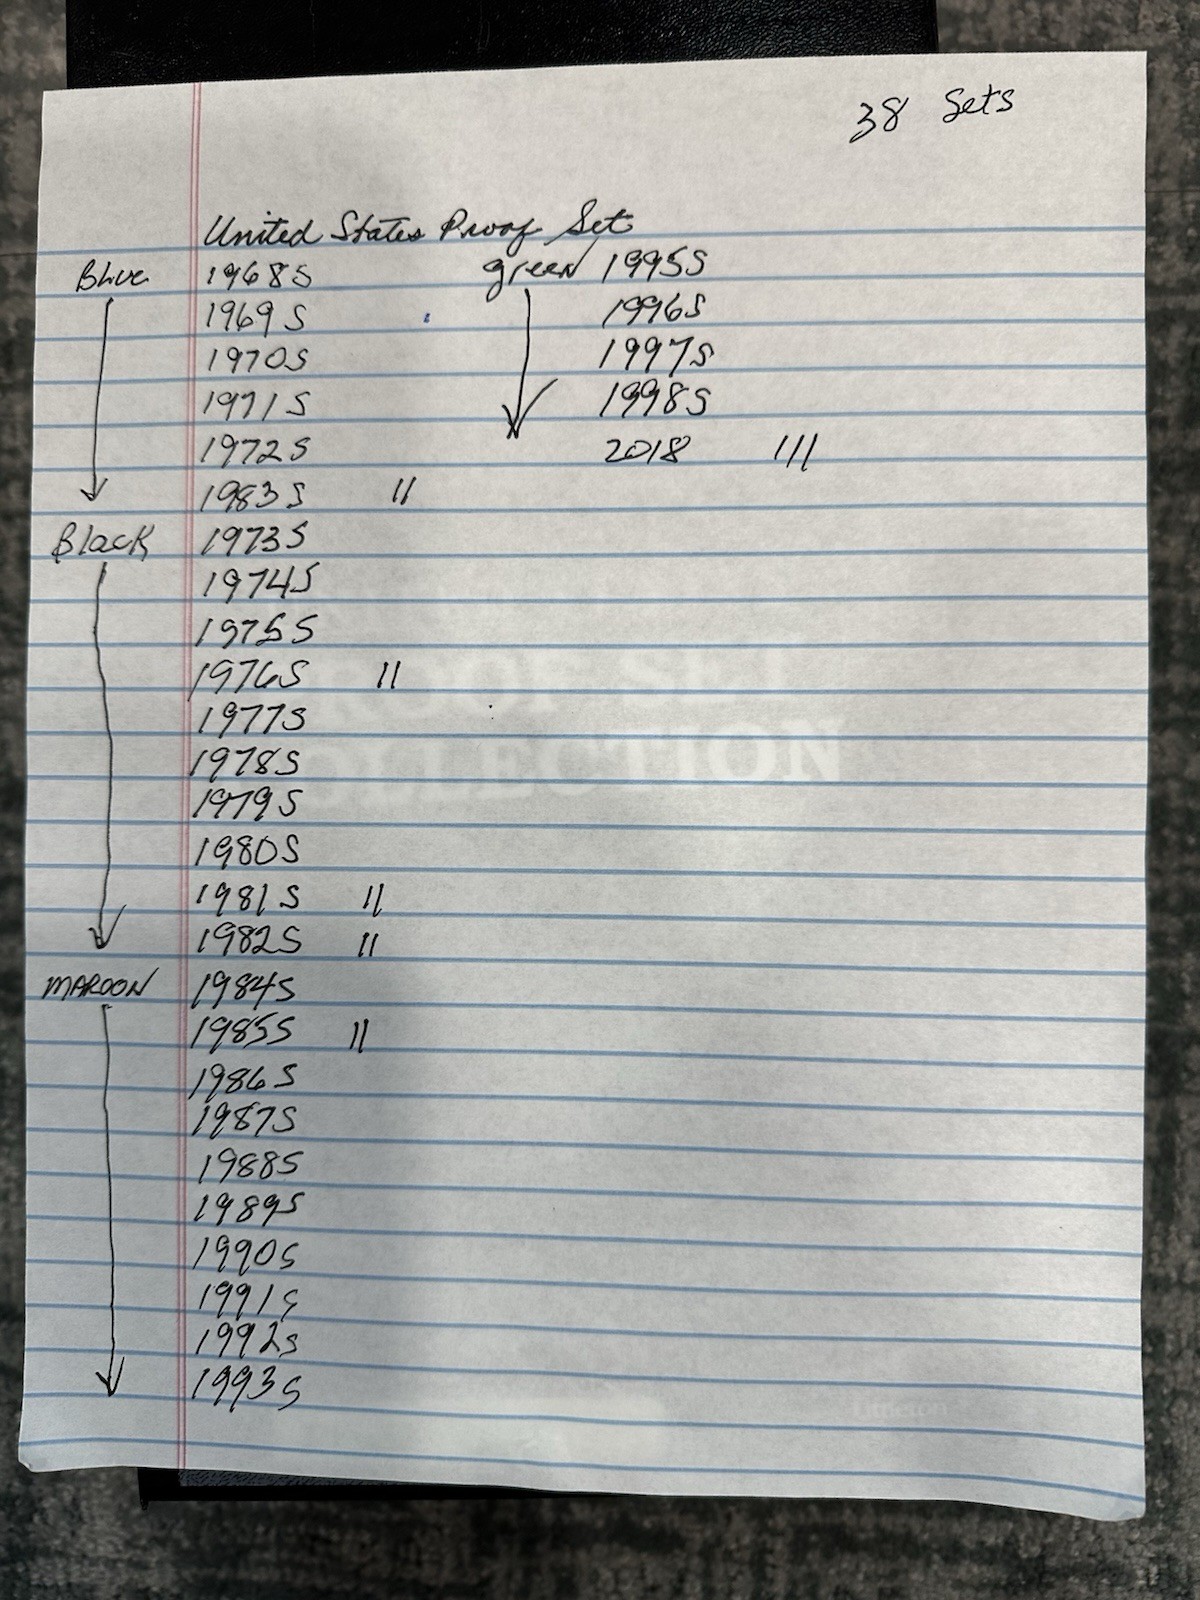 38 Sets
United States Proof Set
Blue 1968S
1969S
1970S
1971S
1972S
1983S 11
Black 1973S
1974S
1975S
1976S 11
1977S
1978S
1979S
1980S
1981S 11
1982S 11
MAROON 1984S
1985S 11
1986S
1987S
1988S
1989S
1990S
1991S
1992S
1993S
green 1995S
1996S
1997S
1998S
2018 111
ROOF SET
OLLECTION
Littleton